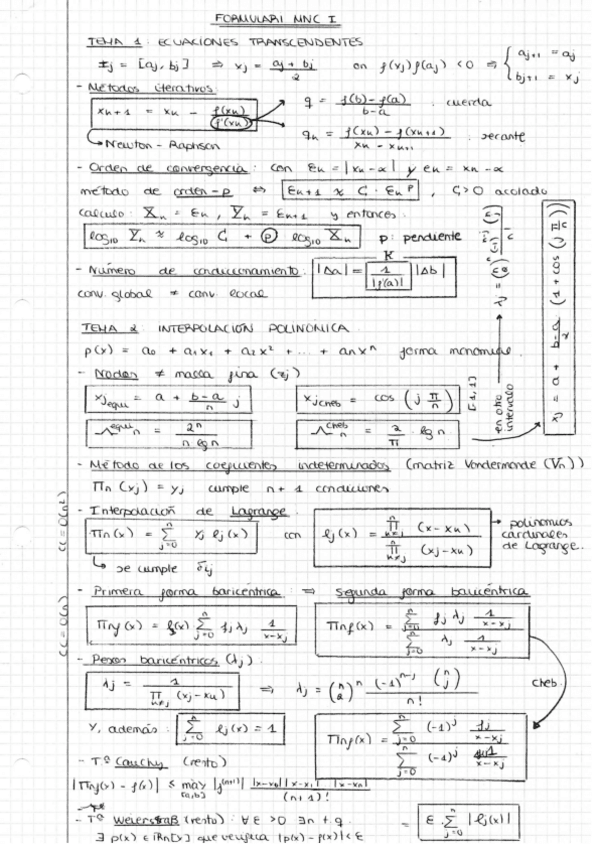 FORMULARI MNC I
TEMA 1: ECUACIONES TRANSCENDENTES
Ij = [aj, bj] ⇒ xj = (aj + bj)/2 on f(xj)f(aj) < 0 ⇒ { aj+1 = aj
bj+1 = xj
- Métodos iterativos:
xn+1 = xn - f(xn)/f'(xn)
q = (f(b) - f(a))/(b-a) : cuerda
qn = (f(xn) - f(xn+1))/(xn - xn+1) : secante
Newton - Raphson
- Orden de convergencia: con En = |xn - α| y en = xn - α
método de orden-p ⇔ En+1 ≈ C · En^p, C>0 acotado
cálculo: Xn = En, Yn = En+1 y entonces:
log10 Yn ≈ log10 C + p log10 Xn p: pendiente
- Número de condicionamiento: |Δa| = 1/|f'(a)| |Δb|
K
conv. global ≠ conv. local
TEMA 2: INTERPOLACIÓN POLINÓMICA
p(x) = a0 + a1x1 + a2x² + ... + anxⁿ forma monomial
- Nodos ≠ malla fina (zj)
xj equi = a + (b-a)/n j
xj cheb = cos (j π/n) [-1, 1]
Λn equi = 2ⁿ/(n lg n)
Λn cheb = 2/π · lg n
en otro intervalo
xj = a + (b-a)/2 (1 + cos (j π/n))
- Método de los coeficientes indeterminados (matriz Vandermonde (Vn))
Πn (xj) = yj cumple n + 1 condiciones
- Interpolación de Lagrange:
CC = O(n²)
Πn(x) = Σ(j=0..n) yj lj(x) con lj(x) = Π(k≠j) (x - xk) / Π(k≠j) (xj - xk)
→ polinomios
cardinales
de Lagrange.
↳ se cumple δij
- Primera forma baricéntrica: ⇒ Segunda forma baricéntrica
CC = O(n)
Πnf(x) = l(x) Σ(j=0..n) fj λj 1/(x-xj)
Πnf(x) = Σ(j=0..n) fj λj 1/(x-xj) / Σ(j=0..n) λj 1/(x-xj)
- Pesos baricéntricos (λj):
cheb.
λj = 1/Π(k≠j) (xj - xk) ⇒ λj = (n/2)ⁿ (-1)^(n-j) (n j)/n!
Y, además: Σ(j=0..n) lj(x) = 1
Πnf(x) = Σ(j=0..n) (-1)^j fj/(x-xj) / Σ(j=0..n) (-1)^j 1/(x-xj)
- T.ª Cauchy (resto)
|Πnf(x) - f(x)| ≤ máx [a,b] |f(n+1)| |x-x0||x-x1|...|x-xn| / (n+1)!
- Tª Weierstraß (resto): ∀ε >0 ∃n t.q.
∃ p(x) ∈ Rn[x] que verifica |p(x) - f(x)| < ε
= ε · Σ(j=0..n) |lj(x)|